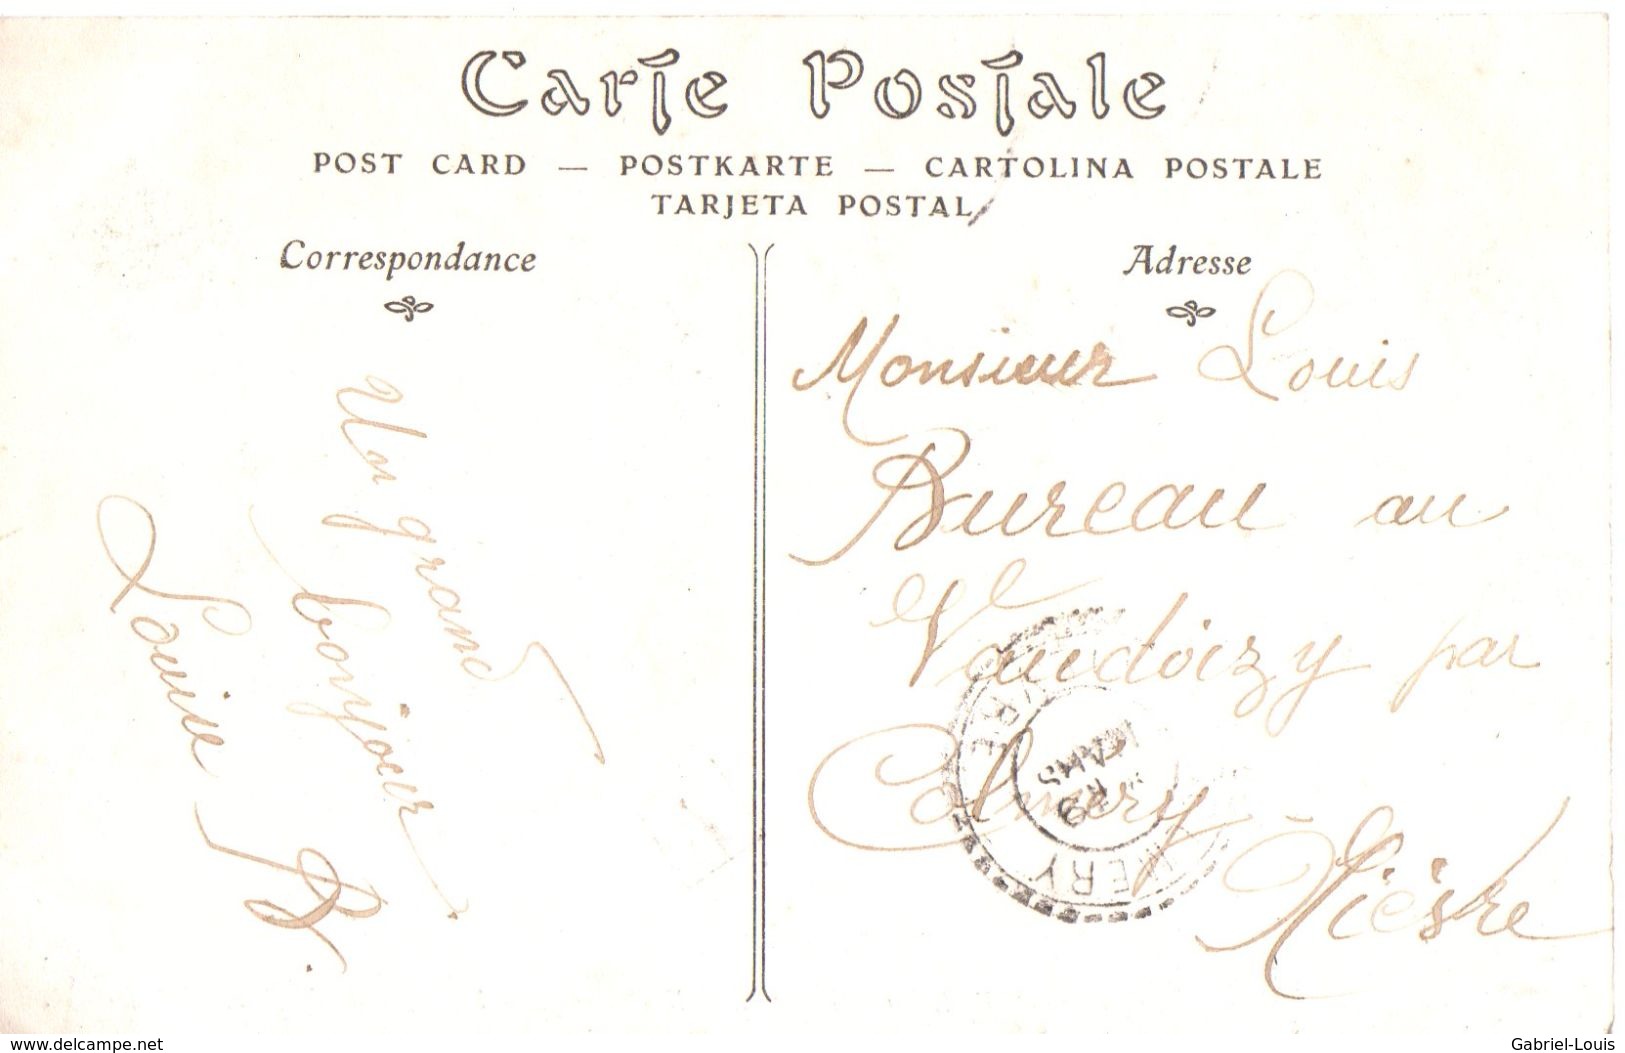 Carte Postale
POST CARD — POSTKARTE — CARTOLINA POSTALE
TARJETA POSTAL
Correspondance
Un grand
bonjour
Louise B.
Adresse
Monsieur Louis
Bureau au
Vaudoizy par
Colmery
Nièsre
MERY
www.delcampe.net
Gabriel-Louis